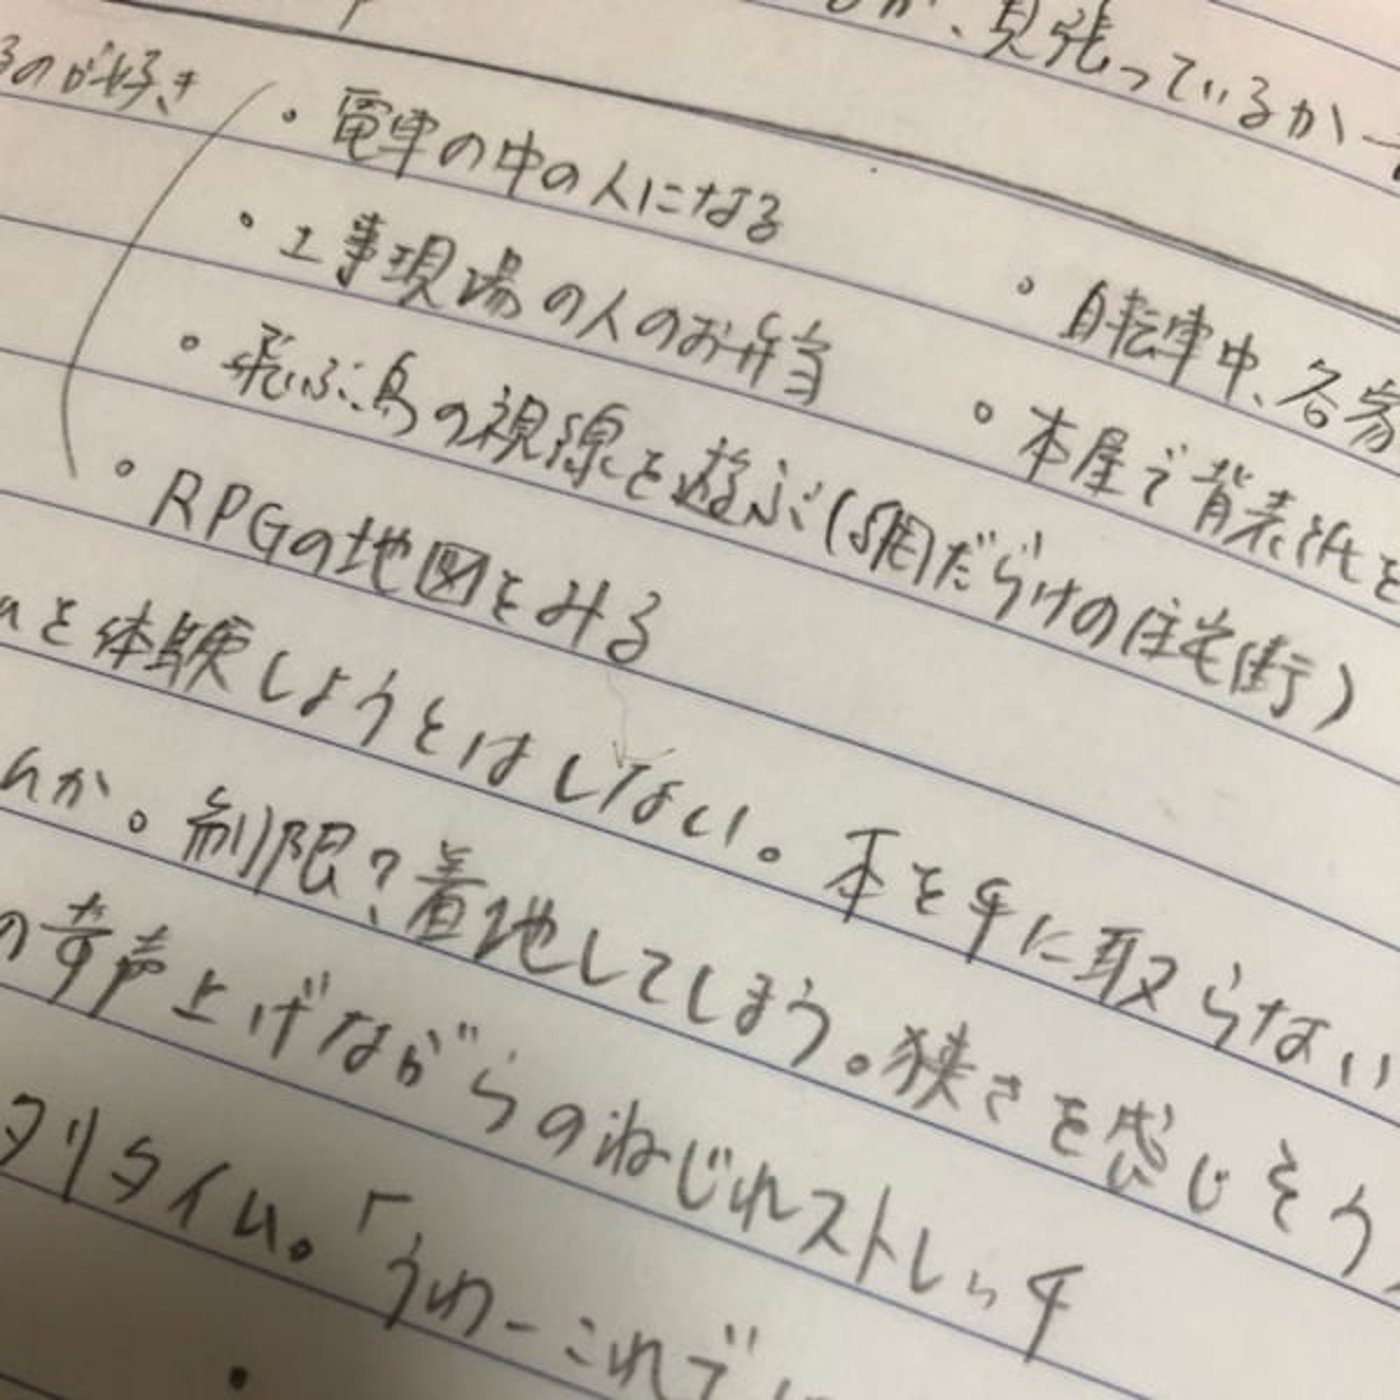 が、見張っているか
るのが好き
・電車の中の人になる
・工事現場の人のお弁当
・自転車中、各家
・飛ぶ鳥の視線を遊ぶ(網だらけの住宅街)
・本屋で背表紙を
・RPGの地図をみる
を体験しようとはしない。本を手に取らない
んか。制限?着地してしまう。狭さを感じそう
の音声上げながらのねじれストレッチ
タリタイム。「うわーこれで